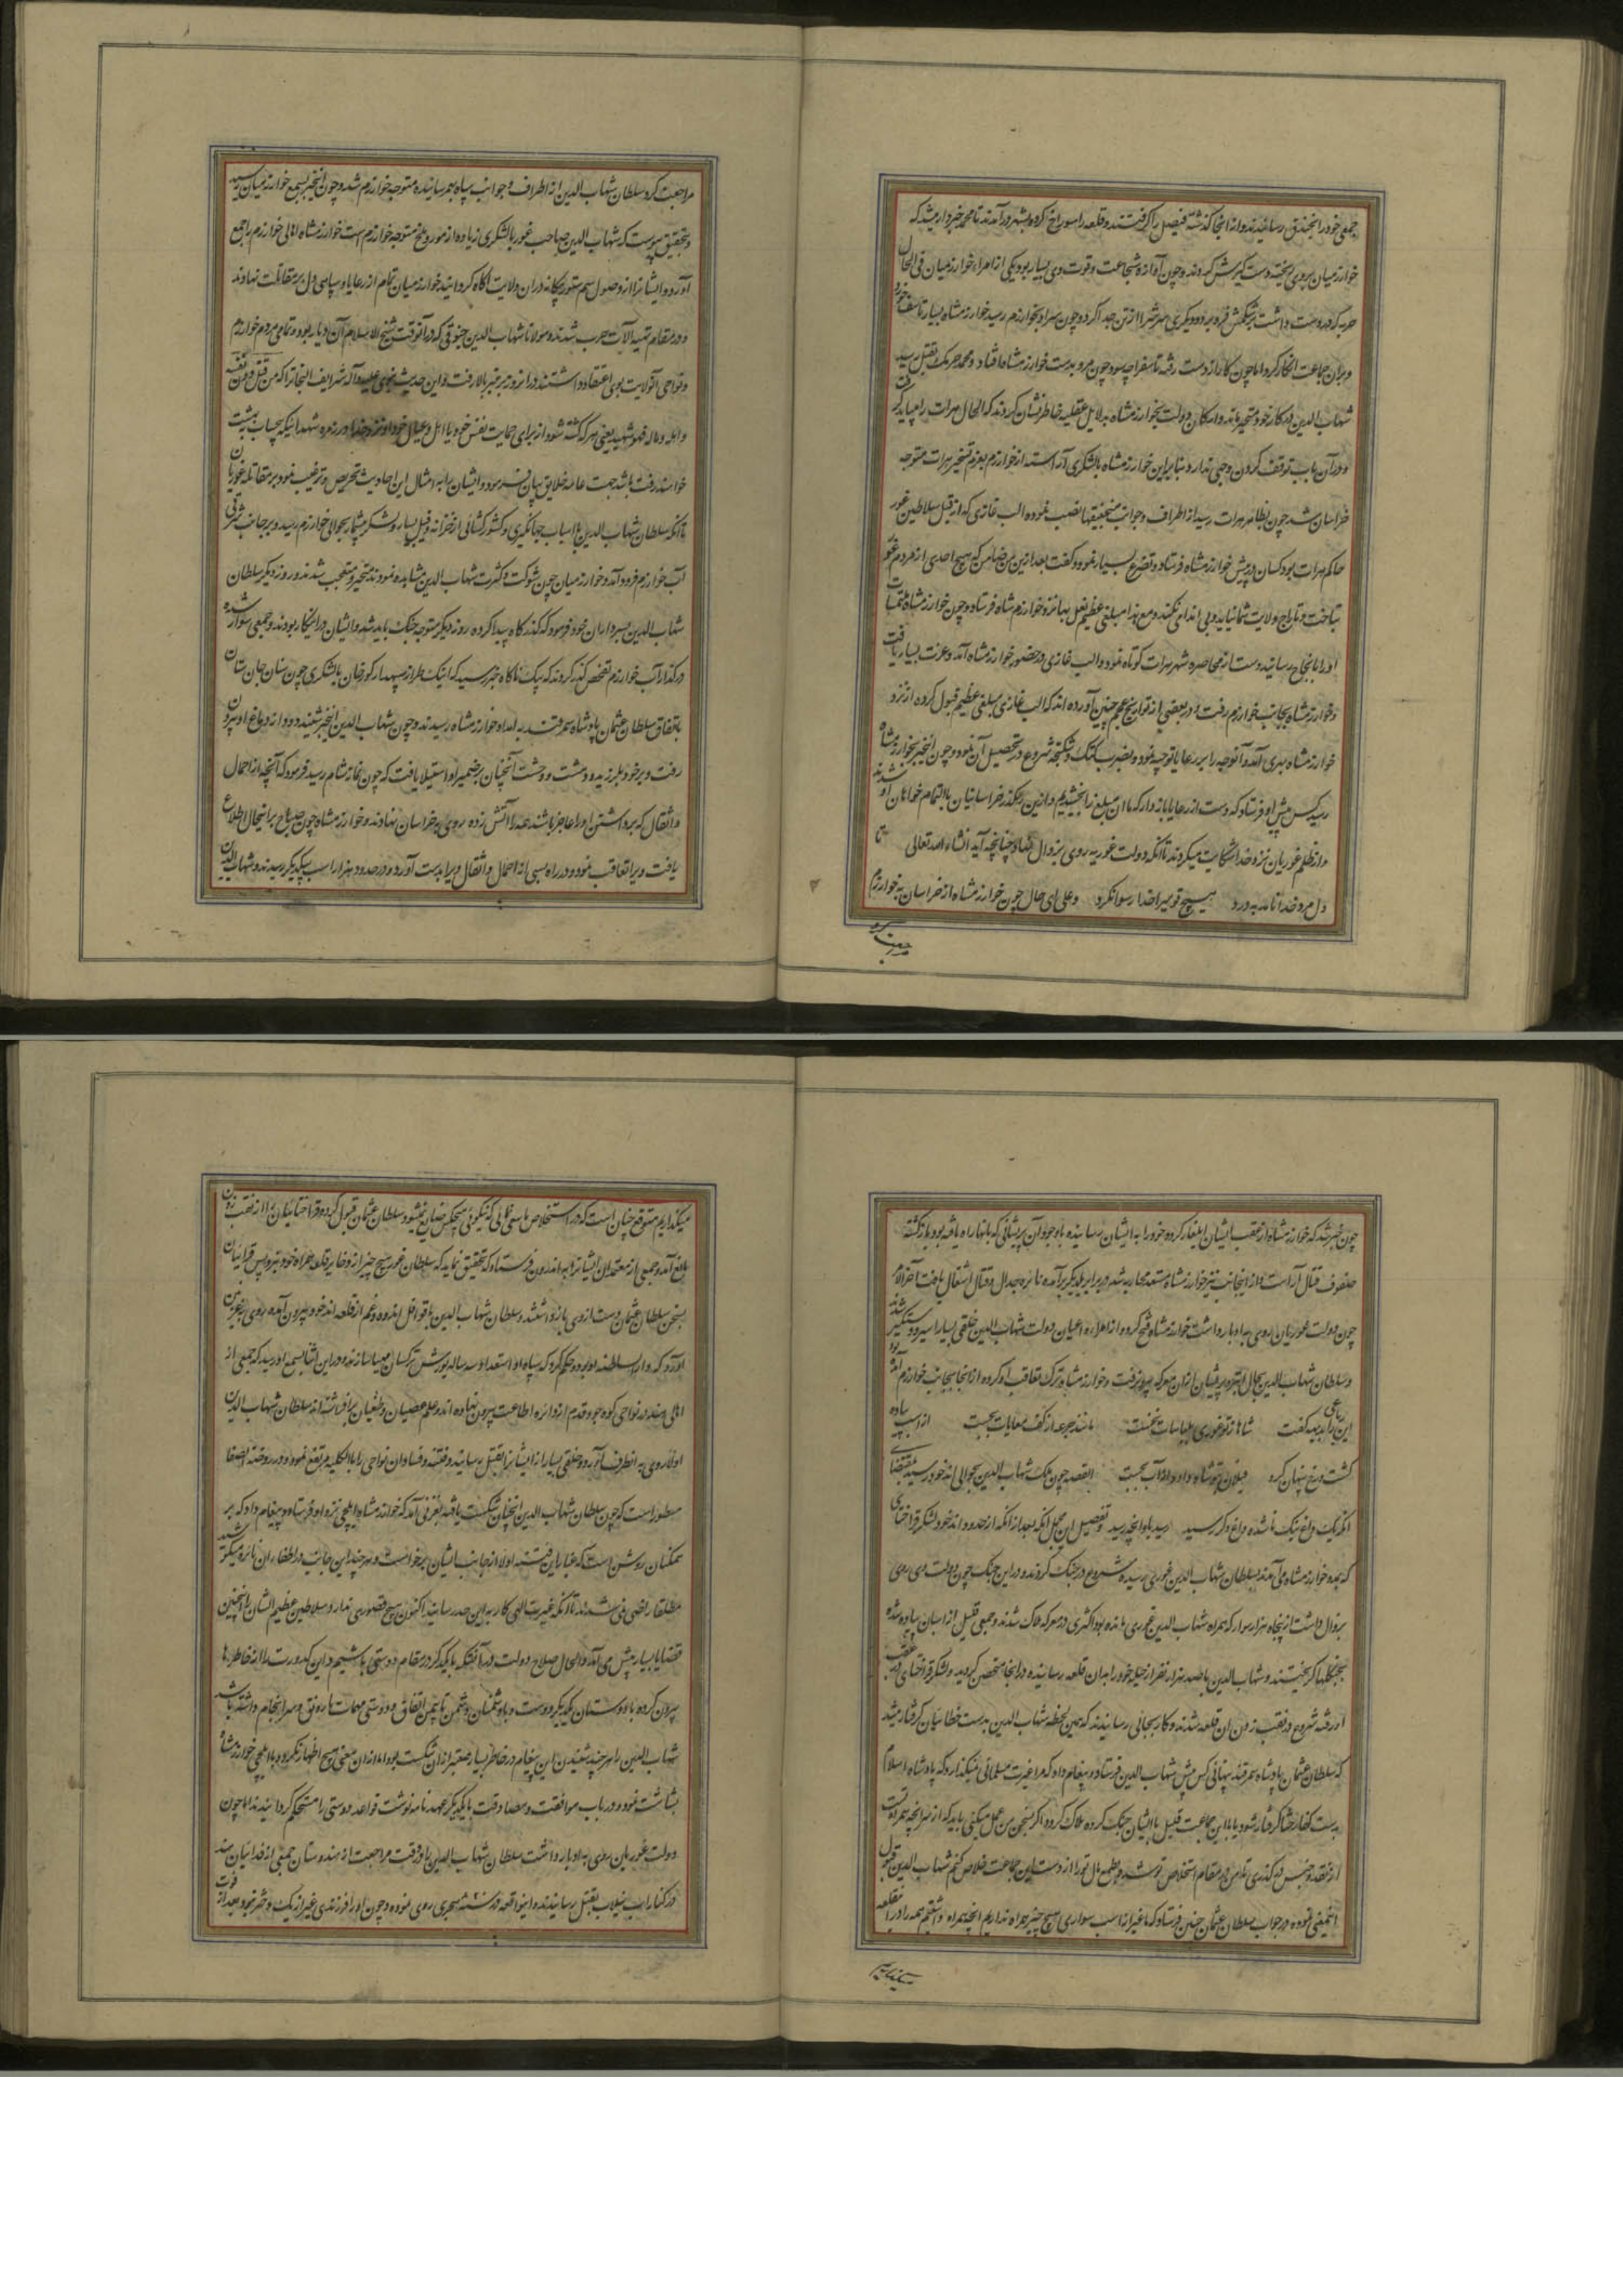 جمعی خود را بخندق رسانیدند و از آنجا گذشته فصیل را گرفتند و قلعه را سوراخ کرده بشهر درآمدند تا محمد خبردار میشد که
خوارزمیان بروی ریخته دستگیرش کردند و چون آوازه شجاعت و قوت وی بسیار بود یکی از امراء خوارزمیان فی الحال
حربه که در دست داشت بر شکمش فرو برد و دیگری سرش را از تن جدا کرد و چون سر او بخوارزم رسید خوارزمشاه بسیار تاسف خورد
و بر آن جماعت انکار کرد اما چون کار از دست رفته تاسف را چه سود چون مرو بدست خوارزمشاه افتاد و محمد خرنک بقتل رسید
شهاب الدین در کار خود متحیر ماند و ارکان دولت بخوارزمشاه بدلایل عقلیه خاطرنشان کردند که الحال هرات را میباید گرفت
و در آن باب توقف کردن وجهی ندارد بنابراین خوارزمشاه با لشکری آراسته از خوارزم بعزم تسخیر هرات متوجه
خراسان شد چون بظاهر هرات رسید از اطراف و جوانب منجنیقها نصب نموده الب غازی که از قبل سلاطین غور
حاکم هرات بود کسان در پیش خوارزمشاه فرستاد و تضرع بسیار نمود و گفت بعد ازین من ضامن که هیچ احدی از مردم غور
بتاخت و تاراج ولایت شما نیاید و بی اندامی نکند و مع هذا مبلغی عظیم نعل بها نزد خوارزم شاه فرستاد و چون خوارزمشاه ملتمسات
او را بانجاح رسانید دست از محاصره شهر هرات کوتاه نمود و الب غازی در حضور خوارزمشاه آمد و عزت بسیار یافت
و خوارزمشاه بجانب خوارزم رفت و در بعضی از تواریخ عجم چنین آورده اند که الب غازی مبلغی عظیم قبول کرده از نزد
خوارزمشاه بهری آمد و آنوجه را بر رعایا توجیه نمود و بضرب کتک و شکنجه شروع در تحصیل آن نمود و چون اینخبر بخوارزمشاه
رسید کس پیش او فرستاد که دست از رعایا بازدار که ما آن مبلغ را بخشیدیم و ازین رهگذر خراسانیان بالتمام خواهان او شدند
و از ظلم غوریان نزد خدا شکایت میکردند تا آنکه دولت غوریه روی بزوال نهاد چنانچه آید انشاء الله تعالی تا
دل مرد خدا نامد بدرد هیچ قومی را خدا رسوا نکرد وعلی ای حال چون خوارزمشاه از خراسان به خوارزم
مراجعت کرد
مراجعت کرد سلطان شهاب الدین از اطراف و جوانب سپاه بهم رسانیده متوجه خوارزم شد و چون اینخبر بسمع خوارزمیان رسید
و بتحقیق پیوست که شهاب الدین صاحب غور با لشکری زیاده از مور و ملخ متوجه خوارزم است خوارزمشاه اهالی خوارزم را جمع
آورد و ایشانرا از وصول سم ستور بیگانه در آن ولایت آگاه گردانید خوارزمیان تمام از رعایا و سپاهی دل بر مقاتلت نهادند
و در مقام تهیه آلات حرب شدند و مولانا شهاب الدین خیوقی که در آنوقت شیخ الاسلام آن دیار بود و تمامی مردم خوارزم
و نواحی آنولایت بوی اعتقاد داشتند در آنروز بر منبر بالا رفت و این حدیث نبوی علیه و آله شرایف التحیات را که من قتل دون نفسه
و اهله و ماله فهو شهید یعنی هر که کشته شود از برای حمایت نفس خود یا اهل و عیال خود او نزد خدا در زمره شهدا نیکه بیحساب به بهشت
خواهند رفت باشد جهت عامه خلایق بیان فرمود و ایشان را به امثال این احادیث تحریص و ترغیب نمود بر مقاتله غوریان
تا آنکه سلطان شهاب الدین با اسباب جهانگیری و کشورگشائی از خزانه و فیل بسیار و لشکر بیشمار بحوالی خوارزم رسید و بر جانب شرقی
آب خوارزم فرود آمد و خوارزمیان چون شوکت و کثرت شهاب الدین مشاهده نمودند متحیر و متعجب شدند و روز دیگر سلطان
شهاب الدین بسرداران خود فرمود که گذرگاه پیدا کرده روز دیگر متوجه جنک باید شد و ایشان در اینکار بودند و جمعی سوار شده
در گذار آب خوارزم تفحص گذر کردند که پیک ناگاه خبر رسید که اینک طراز سپهدار کورخان با لشکری چون سنان جان ستان
باتفاق سلطان عثمان پادشاه سمرقند به امداد خوارزمشاه رسیدند و چون شهاب الدین اینخبر شنید دود از دماغ او بیرون
رفت و بر خود بلرزید و دهشت و وحشت آنچنان بر ضمیر او استیلا یافت که چون نماز شام رسید فرمود که آنچه از احمال
و اثقال که برداشتن او را عاجز باشند همه را آتش زده روی به خراسان نهادند و خوارزمشاه چون صباح بر اینحال اطلاع
یافت ویرا تعاقب نمود و در راه بسی از احمال و اثقال ویرا بدست آورد و در حدود هزار اسب بیکدیگر رسیدند و شهاب الدین
چون خبر شد که خوارزمشاه از عقب ایشان ایلغار کرده خود را به ایشان رسانیده با وجود آن پریشانی که بآنها راه یافته بود بازگشته
صفوف قتال آراست و از اینجانب نیز خوارزمشاه مستعد محاربه شد و در برابر یکدیگر برآمده نائره جدال و قتال اشتعال یافت آخر الامر
چون دولت غوریان روی به ادبار داشت خوارزمشاه فتح کرد و از امراء و اعیان دولت شهاب الدین خلقی بسیار اسیر و دستگیر شدند
و سلطان شهاب الدین بحال ابتر و پریشان از آن معرکه بیرون رفت و خوارزمشاه ترک تعاقب او کرده از آنجا بجانب خوارزم آمد
این رباعی را بدیهه گفت شاها ز تو غوری بلباسات بجست مانند جرعه از کف بجست از اسب پیاده
گشت و رخ پنهان کرد فیلان بتو شاه داد و از مات بجست القصه چون ملک شهاب الدین بحوالی اندخود رسید بمقتضای
آنکه یک داغ نیک ناشده داغ دگر رسید رسید باو آنچه رسید و تفصیل این مجمل آنکه بعد از آنکه از حدود اندخود لشکر قراختای
که بمدد خوارزمشاه می آمدند بسلطان شهاب الدین غوری رسیده شروع در جنگ کردند و در این جنک چون دولت وی روی
بزوال داشت از پنجاه هزار سوار که همراه شهاب الدین غوری مانده بود اکثری در معرکه هلاک شدند و جمعی قلیل از اسبان پیاده شده
بجنگلها گریختند و شهاب الدین با صد هزار نفر از حیله خود را بدان قلعه رسانیده در آنجا متحصن گردید و لشکر قراختای در عقب
او رفته شروع در نقب زدن آن قلعه شدند و کار بجائی رسانیدند که همین لحظه شهاب الدین بدست خطائیان گرفتار میشد
که سلطان عثمان پادشاه سمرقند پنهانی کس پیش شهاب الدین فرستاد و پیغام داد که مرا غیرت مسلمانی نمیگذارد که پادشاه اسلام
بدست کفار خطا گرفتار شود یا با این جماعت قلیل با ایشان جنک کرده هلاک گردد اگر بسخن من عمل میکنی باید که از سر آنچه همراه تست
از نقد و جنس درگذری تا من در مقام استخلاص تو شده و بطمع مال تو را از دست این جماعت خلاص کنم شهاب الدین قبول
اینمعنی نموده در جواب سلطان عثمان چنین فرستاد که ما غیر از اسب سواری هیچ چیز همراه نداریم آنچه همراه داشتیم همه را در این قلعه
میگذاریم
میگذاریم متوقع چنان است که در استخلاص ما سعی نمائی که نیکوئی هیچکس ضایع نمیشود سلطان عثمان قبول کرده قراختائیان را از نقب زدن
مانع آمد و جمعی از معتمدان ایشانرا به اندرون فرستاد که تحقیق نماید که سلطان غور هیچ چیز از ذخایر قلعه همراه خود نبرد پس قراختائیان
بسخن سلطان عثمان دست از وی بازداشتند و سلطان شهاب الدین با قوافل اندوه و غم از قلعه اندخود بیرون آمده روی به غزنین
آورد که دار السلطنه او بود و حکم کرد که سپاه او استعداد سه ساله یورش ترکستان مهیا سازند و در این اثنا بسمع او رسید که جمعی از
اهالی هند در نواحی کوه جود قدم از دائره اطاعت بیرون نهاده اند و علم عصیان و طغیان برافراشته اند سلطان شهاب الدین
اولا روی به آنطرف آورد و خلقی بسیار از ایشانرا بقتل رسانید و فتنه و فساد آن نواحی را بالکلیه مرتفع نمود و در روضه الصفا
مسطور است که چون سلطان شهاب الدین آنچنان شکست یافته بغزنی آمد که خوارزمشاه ایلچی نزد او فرستاد و پیغام داد که بر
همکنان روشن است که غبار این فتنه اولا از جانب ایشان برخواست و هر چند این جانب در اطفاء آن نائره میکوشید
مطلقا راضی نمی شدند تا آنکه غیرت الهی کار به این حد رسانید اکنون هیچ قصوری ندارد و سلاطین عظیم الشان را اینچنین
قضایا بسیار پیش می آمد و الحال صلاح دولت در آنست که با یکدیگر در مقام دوستی باشیم و این کدورت را از خاطرها
بیرون کرده با دوستان یکدیگر دوست و با دشمنان دشمن تا بیمن اتفاق و دوستی مهمات ما رونق و سرانجام داشته باشد
شهاب الدین را هر چند شنیدن این پیغام در خاطر بسیار صعبتر از آن شکست بود اما از آن معنی هیچ اظهار نکرد و با ایلچی خوارزمشاه
بشاشت نمود و در باب موافقت و مصادقت با یکدیگر عهدنامه نوشت قواعد دوستی را مستحکم گردانیدند اما چون
دولت غوریان روی به ادبار داشت سلطان شهاب الدین را در وقت مراجعت از هندوستان جمعی از فدائیان هند
در کنار آب نیلاب بقتل رسانیدند و اینواقعه در سنه هجری روی نموده و چون او را فرزندی غیر از یک دختر نبود بعد از فوت